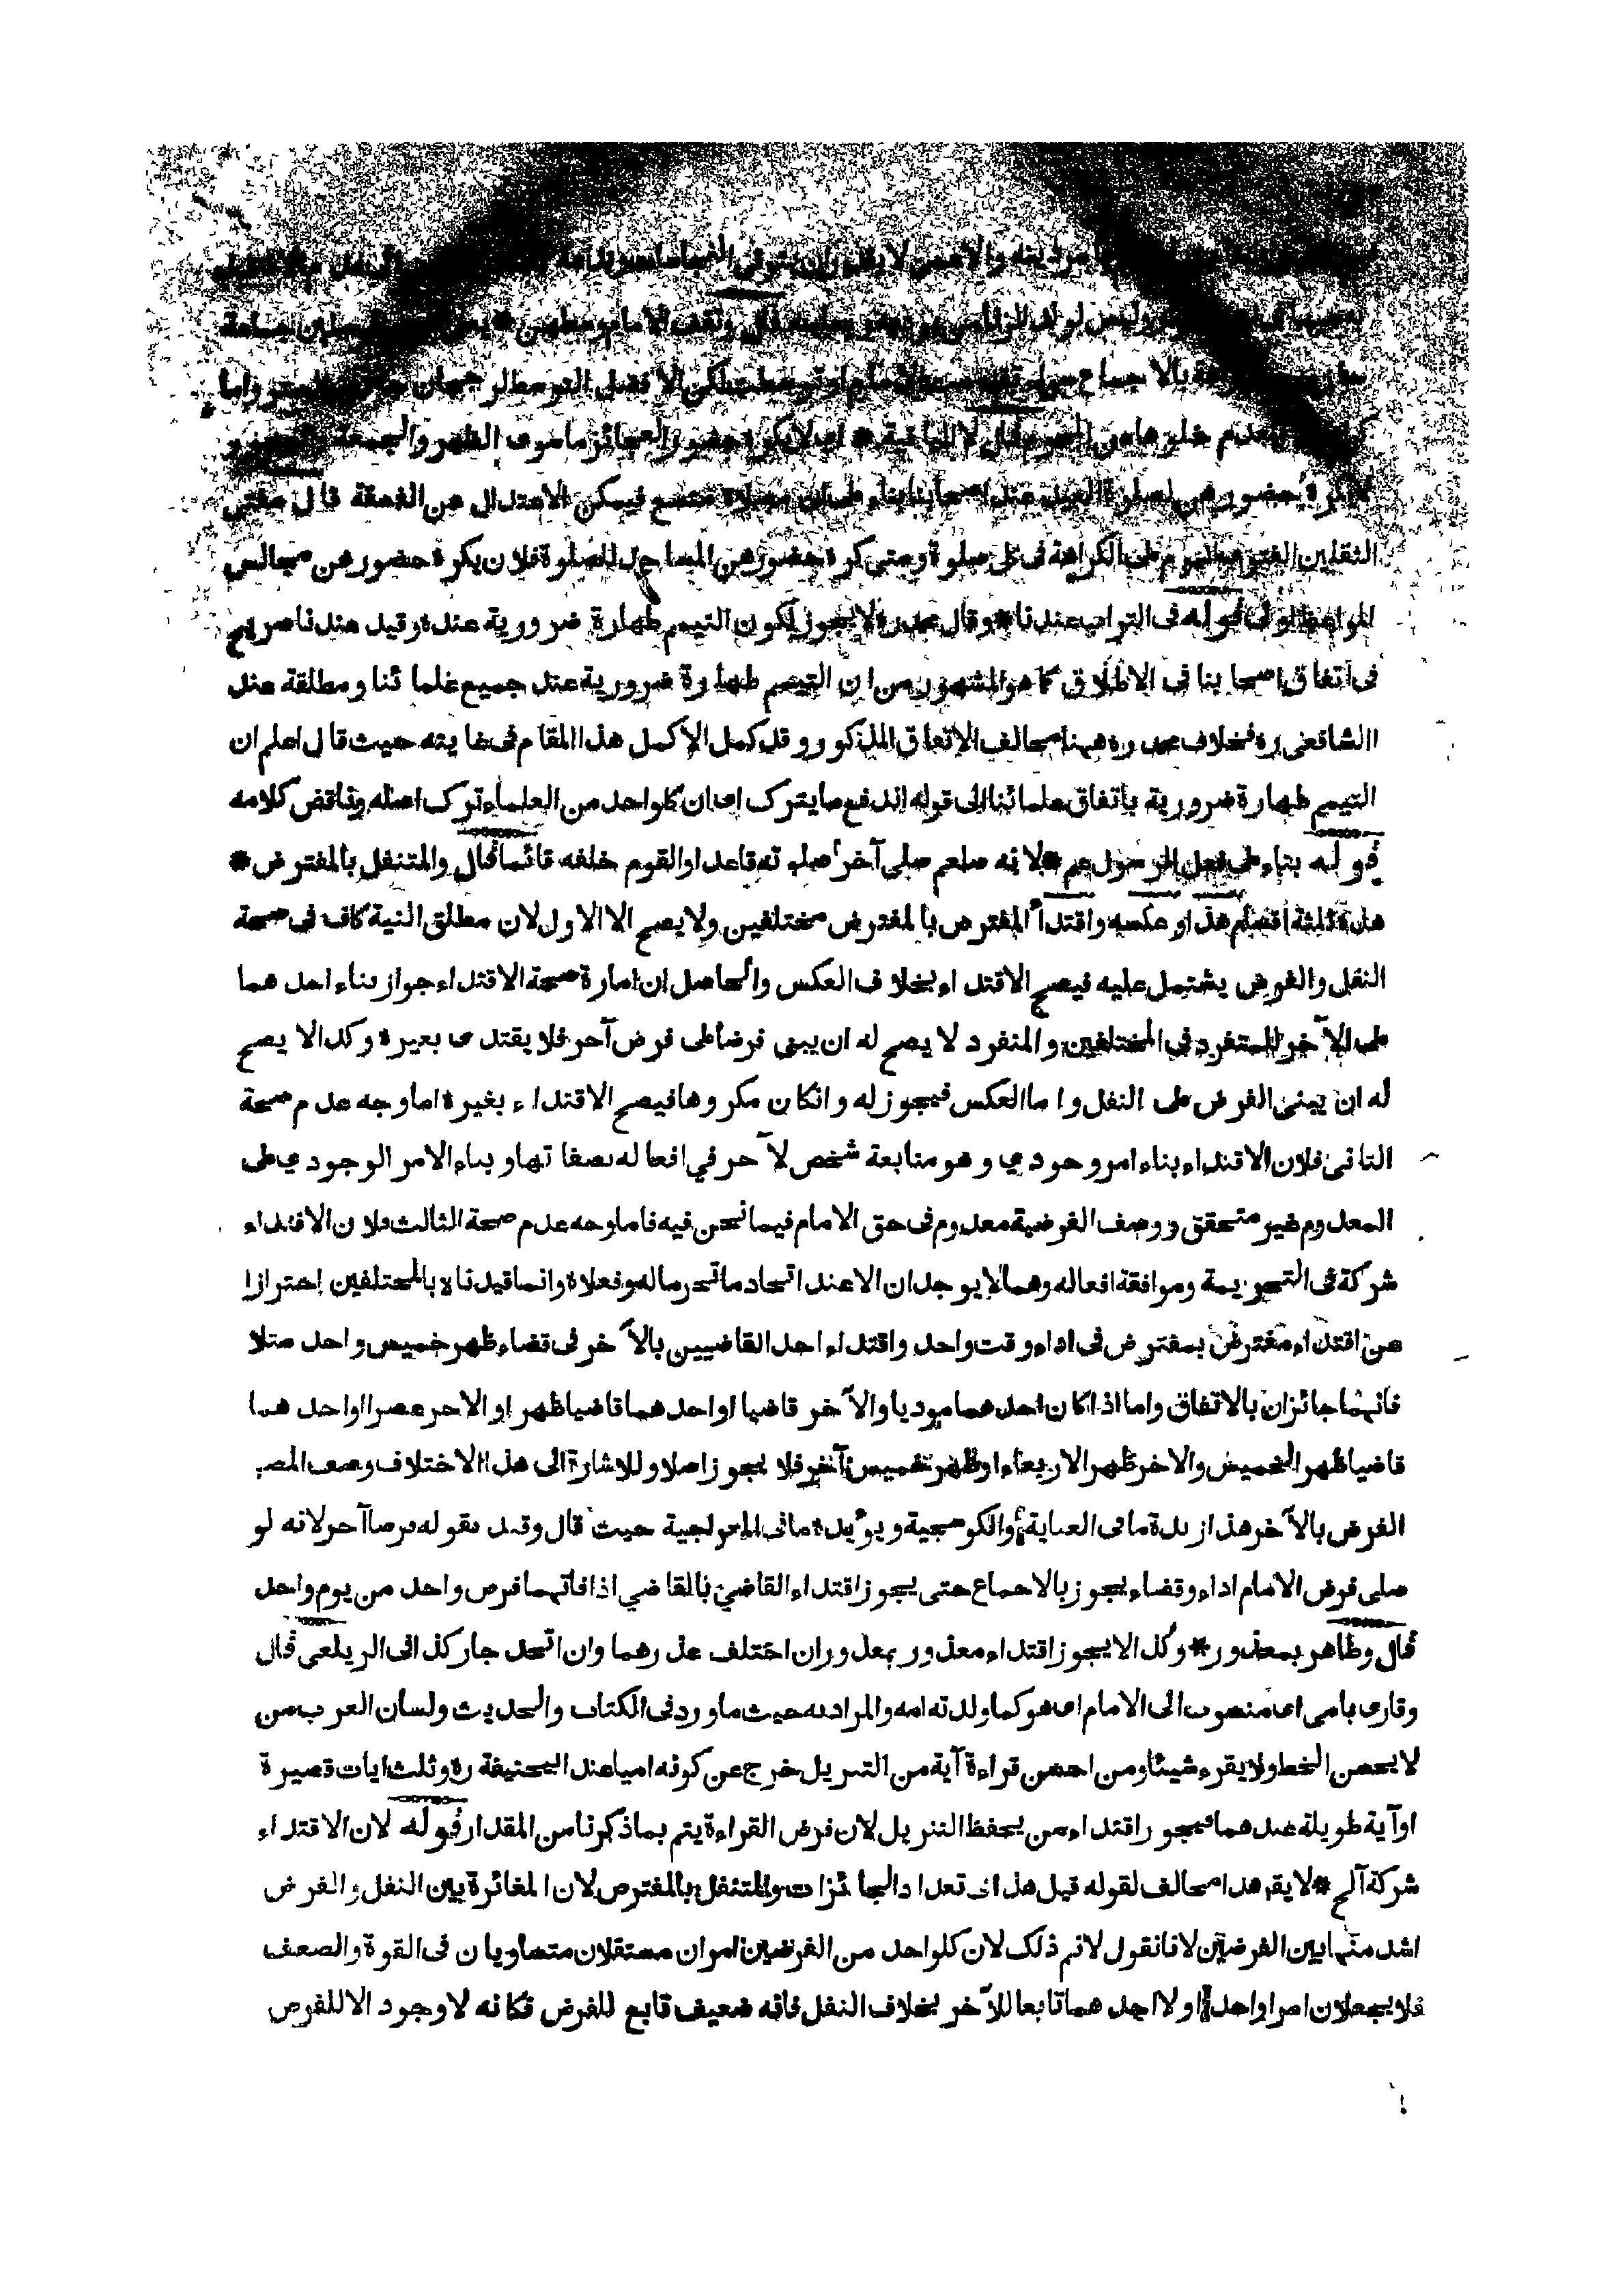 والاعمى لا يقدر ان يتوقى النجاسات
وليس لولد الزنا قال وتقف الامام وسطهن
بالاجماع سواء الامام او توسطت لكن الافضل التوسط واما
عدم خلوها عن المحرم قال لا الباقية * اى لا يكره حضور العجائز ما سوى الظهر والجمعة
بحضورهن لصلوة العيد عند اصحابنا بناء على ان مصلاة متسع فيمكن الاعتدال عن الفسقة قال مفتى
الثقلين الفتوى اليوم على الكراهة فى كل صلوة ومتى كره حضورهن المساجد للصلوة فلان يكره حضورهن مجالس
المواعظ اولى قوله فى التراب عندنا * وقال محمد ره لا يجوز لكون التيمم طهارة ضرورية عنده وقيل عندنا
فى اتفاق اصحابنا فى الاطلاق كما هو المشهور من ان التيمم طهارة ضرورية عند جميع علمائنا ومطلقة عند
الشافعى ره فخلاف محمد ره ههنا مخالف الاتفاق المذكور وقد كمل الاكمل هذا المقام فى غايته حيث قال اعلم ان
التيمم طهارة ضرورية باتفاق علمائنا الى قوله اندفع ما يترك اى ان كلواحد من العلماء ترك اصله وناقض كلامه
قوله بناء على فعل الرسول عم * لانه صلعم صلى آخر صلوته قاعدا والقوم خلفه قائما قال والمتنفل بالمفترض *
هذه ثلثة اقسام هذا وعكسه واقتداء المفترض بالمفترض مختلفين ولا يصح الا الاول لان مطلق النية كاف فى صحة
النفل والفرض يشتمل عليه فيصح الاقتداء بخلاف العكس والحاصل ان امارة صحة الاقتداء جواز بناء احدهما
على الآخر للمنفرد فى المختلفين والمنفرد لا يصح له ان يبنى فرضا على فرض آخر فلا يقتدى بغيره وكذا لا يصح
له ان يبنى الفرض على النفل واما العكس فيجوز له وانكان مكروها فيصح الاقتداء بغيره اما وجه عدم صحة
الثانى فلان الاقتداء بناء امر وجودي وهو متابعة شخص لآخر في افعاله بصفاتها وبناء الامر الوجودي على
المعدوم غير متحقق ووصف الفرضية معدوم فى حق الامام فيما نحن فيه فاما وجه عدم صحة الثالث فلان الاقتداء
شركة فى التحريمة وموافقة افعاله وهما لا يوجدان الا عند اتحاد ما تحرما له وفعلاه وانما قيدناه بالمختلفين احترازا
عن اقتداء مفترض بمفترض فى اداء وقت واحد واقتداء احد القاضيين بالآخر فى قضاء ظهر خميس واحد مثلا
فانهما جائزان بالاتفاق واما اذا كان احدهما موديا والآخر قاضيا او احدهما قاضيا ظهرا والاخر عصرا او احدهما
قاضيا ظهر الخميس والاخر ظهر الاربعاء او ظهر خميس آخر فلا يجوز اصلا وللاشارة الى هذا الاختلاف وصف المصـ
الفرض بالآخر هذا زبدة ما فى العناية والكوسجية ويؤيده ما فى المعراجية حيث قال وقيد بقوله فرضا آخر لانه لو
صلى فرض الامام اداء وقضاء يجوز بالاجماع حتى يجوز اقتداء القاضي بالقاضي اذا فاتهما فرض واحد من يوم واحد
قال وطاهر بمعذور * وكذا لا يجوز اقتداء معذور بمعذور ان اختلف عذرهما وان اتحد جاز كذا فى الزيلعى قال
وقارى بامى اى منصوب الى الامام اى هو كما ولدته امه والمراد به حيث ما ورد فى الكتاب والحديث ولسان العرب من
لا يحسن الخط ولا يقرء شيئا ومن احسن قراءة آية من التنزيل خرج عن كونه اميا عند ابيحنيفة ره وثلث ايات قصيرة
او آية طويلة عندهما فيجوز اقتداء من يحفظ التنزيل لان فرض القراءة يتم بما ذكرنا من المقدار قوله لان الاقتداء
شركة آلخ * لا يقم هذا مخالف لقوله قبل هذا فى تعداد الجائزات والمتنفل بالمفترض لان المغائرة بين النفل والفرض
اشد منها بين الفرضين لانا نقول لا نم ذلك لان كلواحد من الفرضين امران مستقلان متساويان فى القوة والضعف
فلا يجعلان امرا واحدا ولا احدهما تابعا للآخر بخلاف النفل فانه ضعيف تابع للفرض فكانه لا وجود الا للفرض